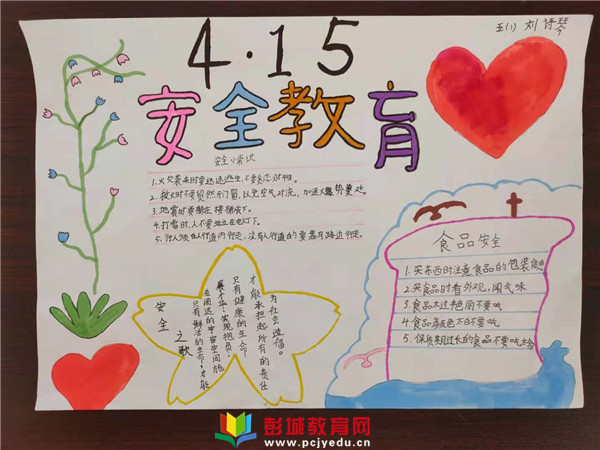 五(1) 刘诗琴
4·15
安全教育
安全小常识
1.火灾袭来时要迅速逃生,不要贪恋财物。
2.救火时不要贸然开门窗,以免空气对流,加速火势蔓延。
3.地震时要躲在楼梯底下。
4.打雷时,人不要站立在电灯下。
5.行人须在人行道内行走,没有人行道的要靠路边行走。
安全之歌
只有鲜活的生命,才能
在闲适的宇宙空间能
展才华,实现抱负。
只有健康的生命
才能承担起所有的责任
为社会造福。
食品安全
1.买东西时注意食品的包装
2.买食品时看外观,闻气味
3.食品太过艳丽不要吃
4.食品颜色不白不要吃
5.保质期过长的食品不要吃
彭城教育网
www.pcjyedu.cn